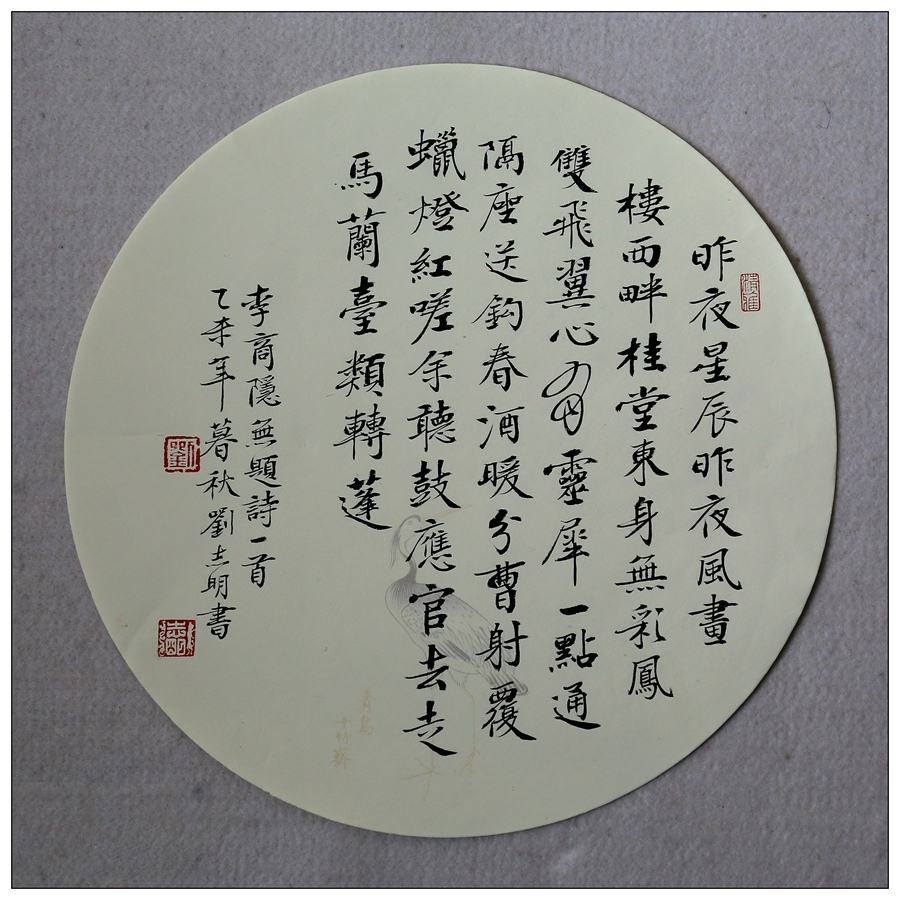 昨夜星辰昨夜風畫
樓西畔桂堂東身無彩鳳
雙飛翼心有靈犀一點通
隔座送鈎春酒暖分曹射覆
蠟燈紅嗟余聽鼓應官去走
馬蘭臺類轉蓬
李商隱無題詩一首
乙未年暮秋劉志明書
劉
青鳥
十竹齋